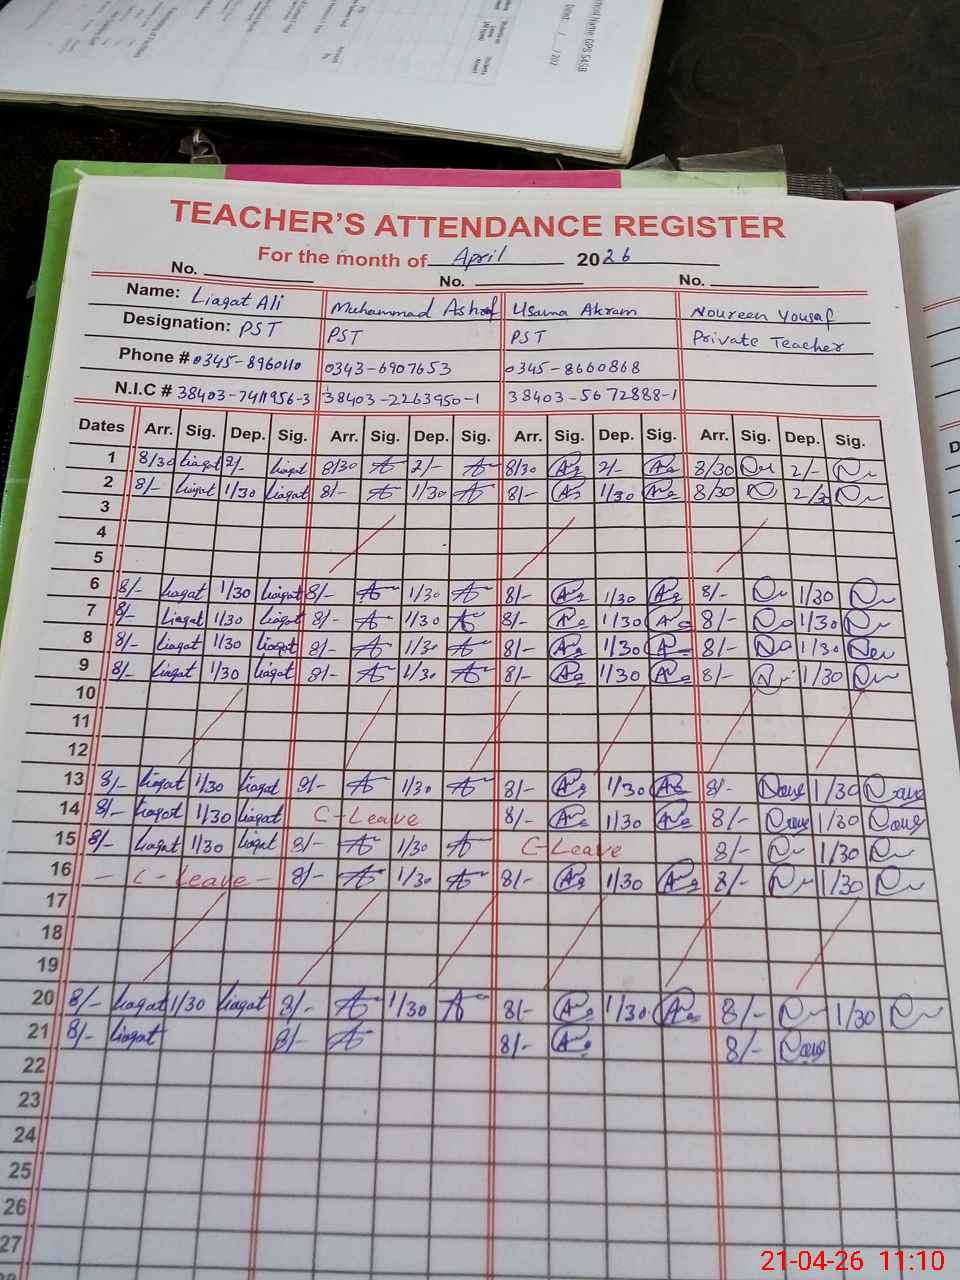 School Name GPS 54SB
Dated: / /202
TEACHER'S ATTENDANCE REGISTER
For the month of April 2026
No. No. No.
Name: Liaqat Ali Muhammad Ashraf Usama Akram Noureen Yousaf
Designation: PST PST PST Private Teacher
Phone # 0345-8960110 0343-6907653 0345-8660868
N.I.C # 38403-7411956-3 38403-2263950-1 38403-5672888-1
Dates Arr. Sig. Dep. Sig. Arr. Sig. Dep. Sig. Arr. Sig. Dep. Sig. Arr. Sig. Dep. Sig.
1 8/30 Liaqat 2/- Liaqat 8/30 2/- 8/30 2/- 8/30 2/-
2 8/- Liaqat 1/30 Liaqat 8/- 1/30 8/- 1/30 8/30 2/30
3
4
5
6 8/- Liaqat 1/30 Liaqat 8/- 1/30 8/- 1/30 8/- 1/30
7 8/- Liaqat 1/30 Liaqat 8/- 1/30 8/- 1/30 8/- 1/30
8 8/- Liaqat 1/30 Liaqat 8/- 1/30 8/- 1/30 8/- 1/30
9 8/- Liaqat 1/30 Liaqat 8/- 1/30 8/- 1/30 8/- 1/30
10
11
12
13 8/- Liaqat 1/30 Liaqat 8/- 1/30 8/- 1/30 8/- 1/30
14 8/- Liaqat 1/30 Liaqat C-Leave 8/- 1/30 8/- 1/30
15 8/- Liaqat 1/30 Liaqat 8/- 1/30 C-Leave 8/- 1/30
16 - C-Leave - 8/- 1/30 8/- 1/30 8/- 1/30
17
18
19
20 8/- Liaqat 1/30 Liaqat 8/- 1/30 8/- 1/30 8/- 1/30
21 8/- Liaqat 8/- 8/- 8/-
22
23
24
25
26
27
21-04-26 11:10